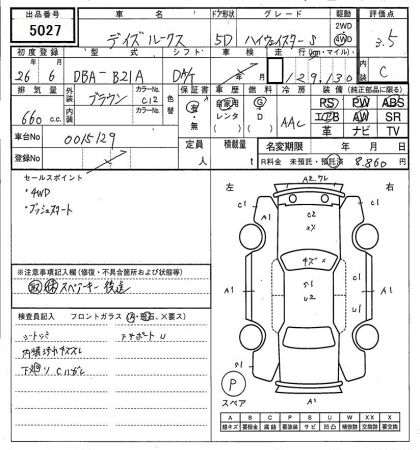 出品番号 車名 ドア形状 グレード 駆動 評価点
5027 デイズルークス 5D ハイウェイスターS 2WD 4WD 3.5
初度登録 型式 シフト 車検 走行(km・マイル) 内装
26年 6月 DBA-B21A DA/T 129,130 C
排気量 外装 カラーNo. 色替 保証書 車歴 燃料 冷房 装備(純正部品に限る)
660 c.c. ブラウン C12 有・無 自家用 レンタ G D AAC PS PW ABS
内装 カラーNo. エアB AW SR
革 ナビ TV
車台No 0015129 定員 人 積載量 t 名変期限 年 月 日
登録No R料金 未預託・預託済 8,860円
セールスポイント
・4WD
・プッシュスタート
※注意事項記入欄(修復・不具合箇所および状態等)
取 保 スペアーキー 後送
検査員記入 フロントガラス(A・飛石、×要ス)
シートシミ 下サポートU
内張汚れキズスレ
下廻り Cハガレ
左 右
A2.ワレ
C1
A1
C2
XX
キズ×
S1
U2
A1
S1
A1
C1
C1
A1
U1
S1
P
スペア
A B C P S U W X XX
線キズ 要板金 腐蝕 要塗装 サビ 凹凸 補修跡 要交換 交換済